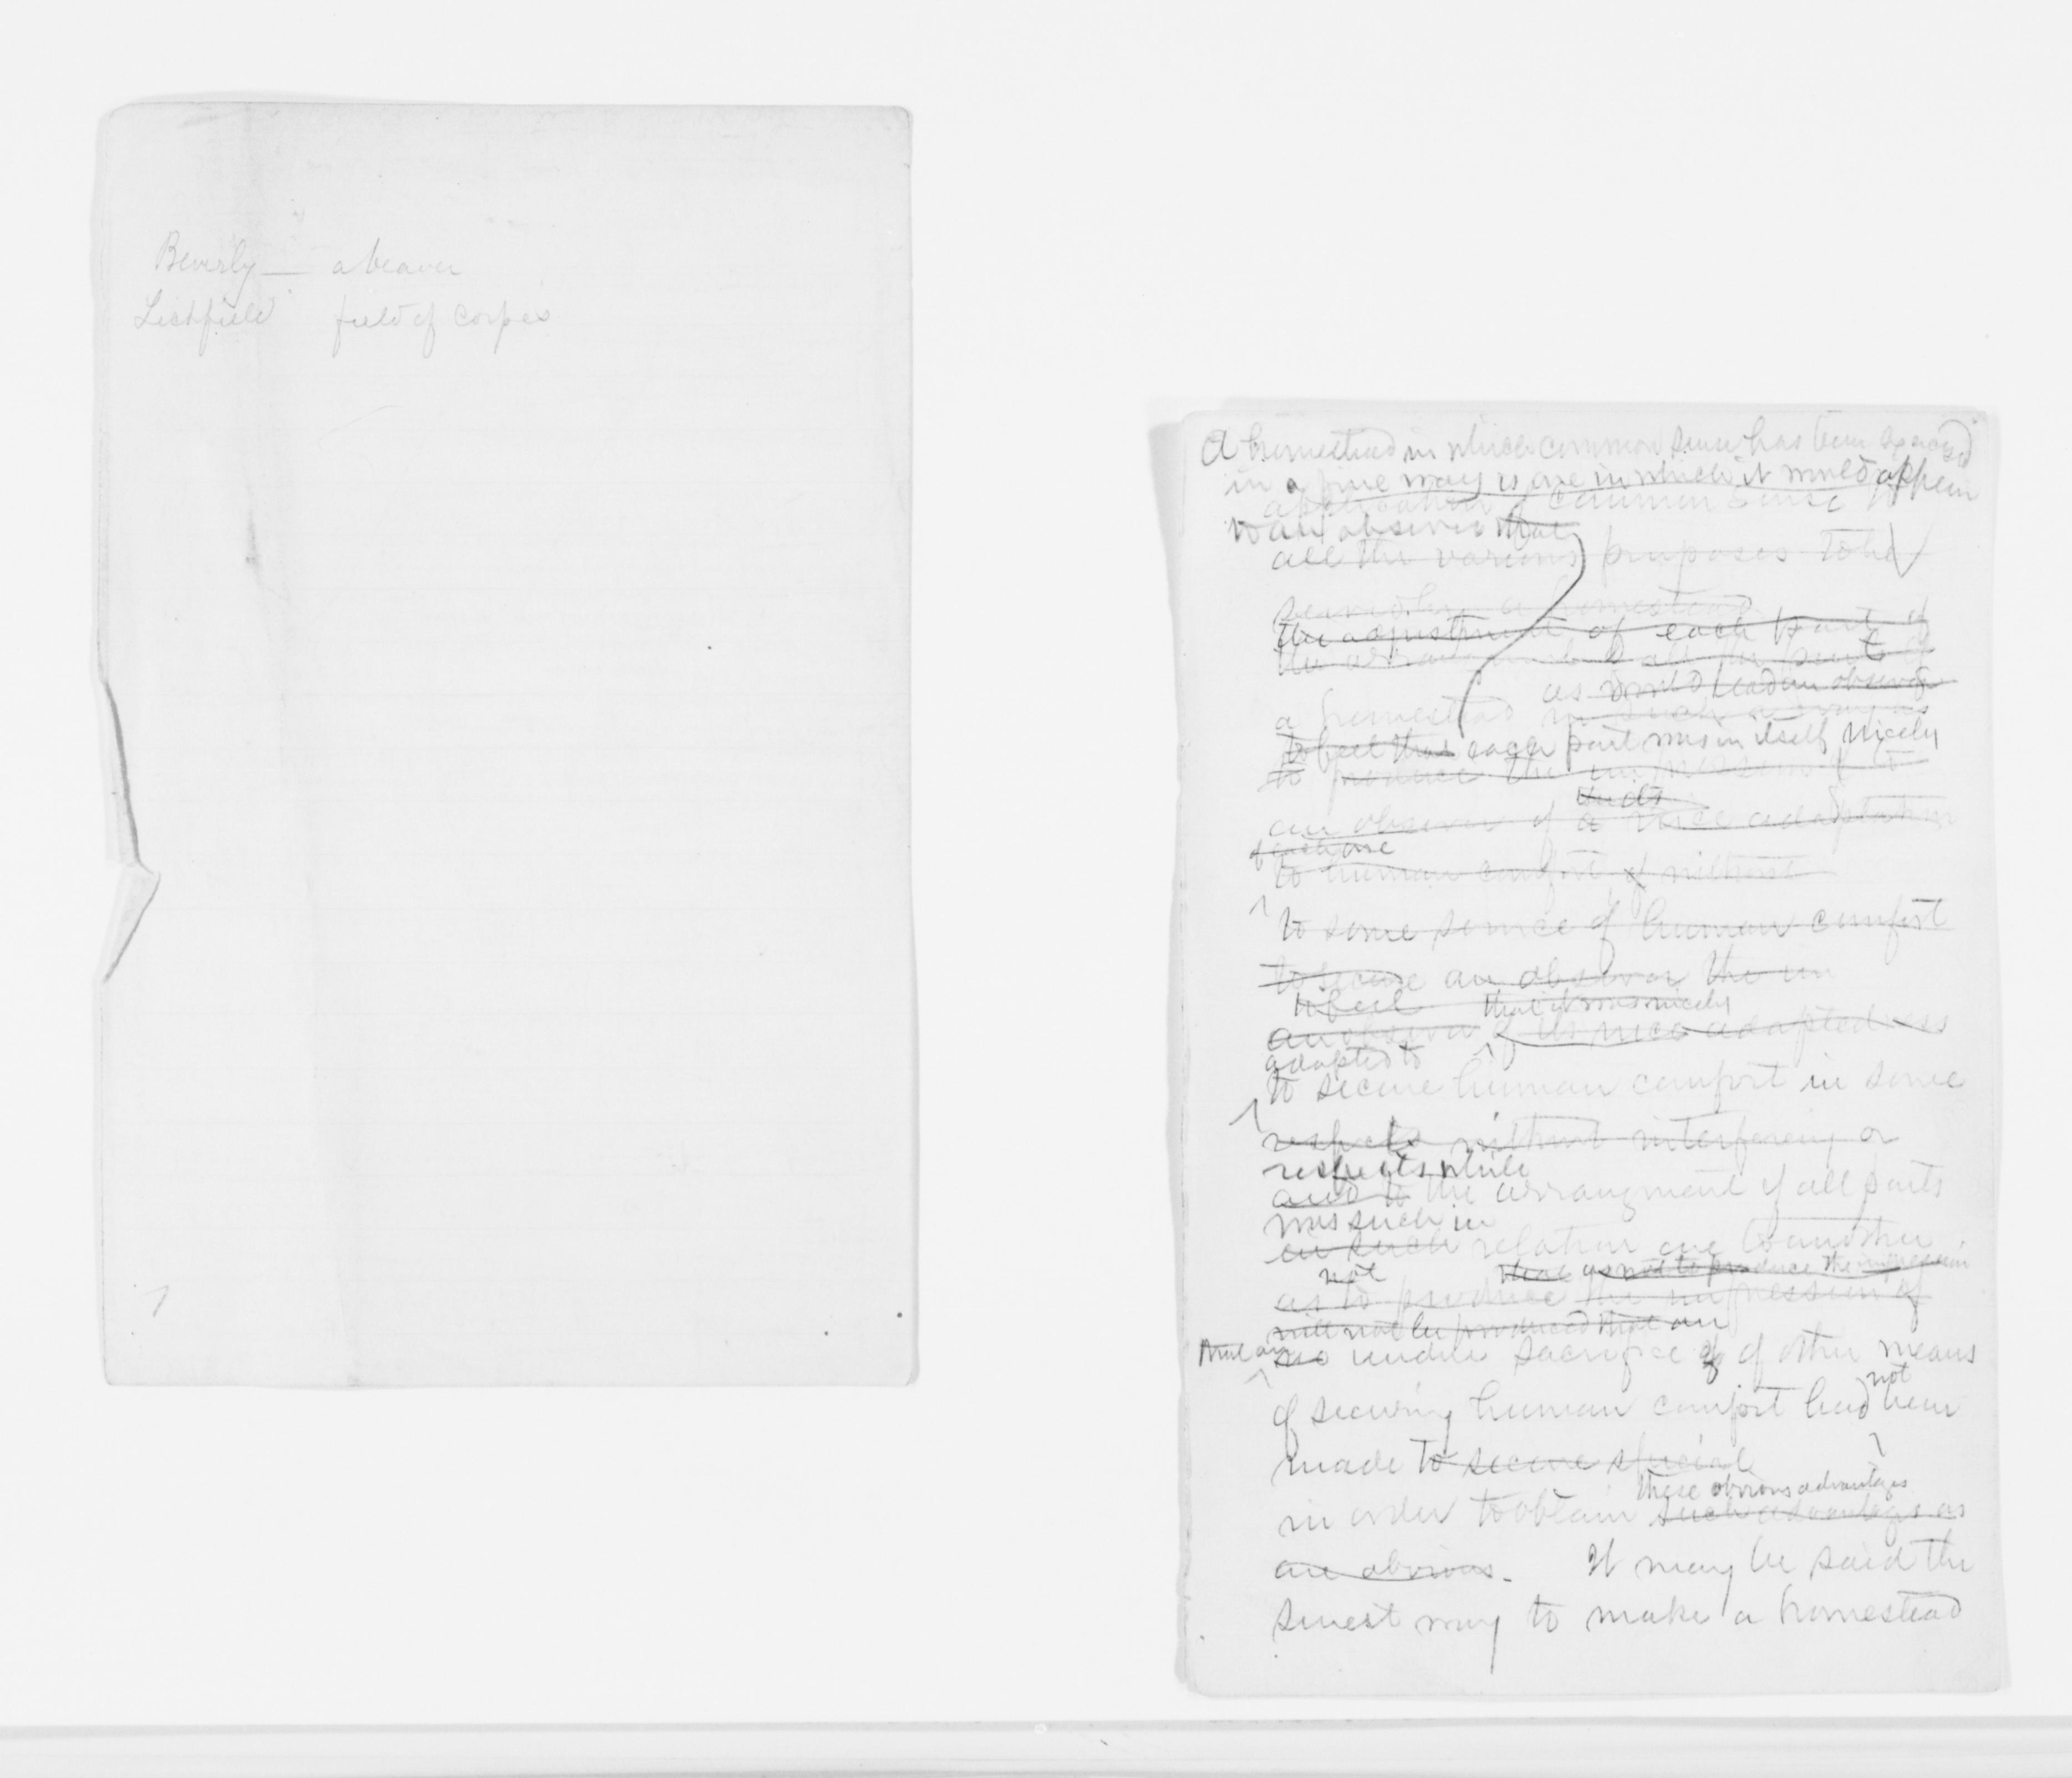 Beverly — a beaver
Lichfield " field of corpes
A homestead in which common sense has been exercised
in a fine way is one in which it would appear
application of common sense to
to an observer that
all the various purposes to be
served by a homestead
the adjustment of each part of
the arrangement of all the parts of
as would lead an observer
a homestead in such a way as
to feel that each part was in itself nicely
to produce the impression to
an observer of a nice adaptation
of each one
to human comfort without
to some source of human comfort
to secure an observer the im
to feel that it was nicely
an observer of its nice adaptedness
adapted to
to secure human comfort in some
respects without interfering or
respects while
and to the arrangment of all parts
was such in
in such relation one to another
not that as not to produce the impression
as to produce the impression of
will not be produced that an
that an no undue sacrifice of of other means
not
of securing human comfort had been
made to secure special
these obvious advantages
in order to obtain such advantages as
are obvious. It may be said the
surest way to make a homestead